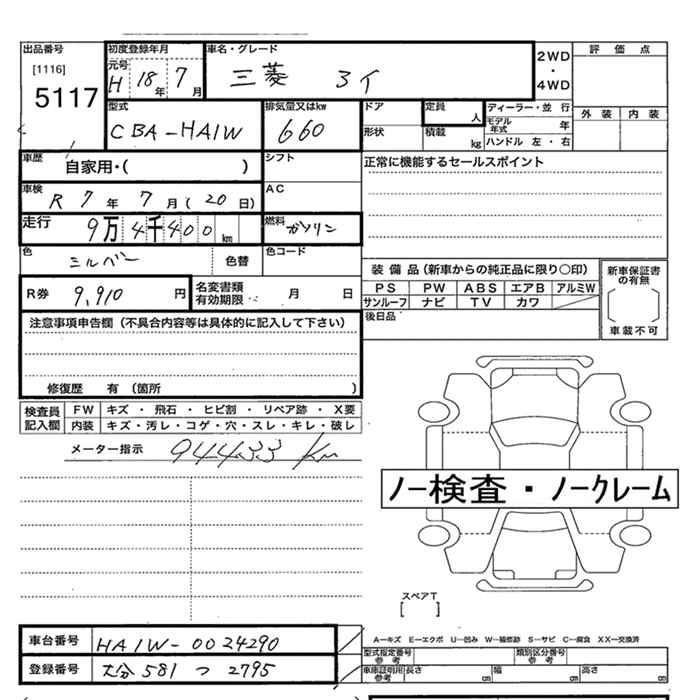 出品番号 初度登録年月 車名・グレード 評価点
[1116] 元号 2WD
5117 H 18年 7月 三菱 アイ ・
4WD
型式 排気量又はkw ドア 定員 人 ディーラー・並行 外装 内装
CBA-HA1W 660 形状 積載 kg モデル年式 年
ハンドル 左・右
車歴 自家用・( ) シフト 正常に機能するセールスポイント
車検 R 7年 7月(20日) AC
走行 9万4千400km 燃料 ガソリン
色 シルバー 色替 色コード
装備品(新車からの純正品に限り○印) 新車保証書の有無
R券 9,910円 名変書類有効期限 月 日 PS PW ABS エアB アルミW
サンルーフ ナビ TV カワ 車載不可
注意事項申告欄(不具合内容等は具体的に記入して下さい) 後日品
修復歴 有(箇所 )
検査員記入欄 FW キズ・飛石・ヒビ割・リペア跡・X要
内装 キズ・汚レ・コゲ・穴・スレ・キレ・破レ
メーター指示 94433 Km
ノー検査・ノークレーム
スペアT
[ ]
車台番号 HA1W-0024290
A―キズ E―エクボ U―凹み W―補修跡 S―サビ C―腐食 XX―交換済
型式指定番号 参考 類別区分番号 参考
登録番号 大分 581 つ 2795
車庫証明用 参考 長さ cm 幅 cm 高さ cm